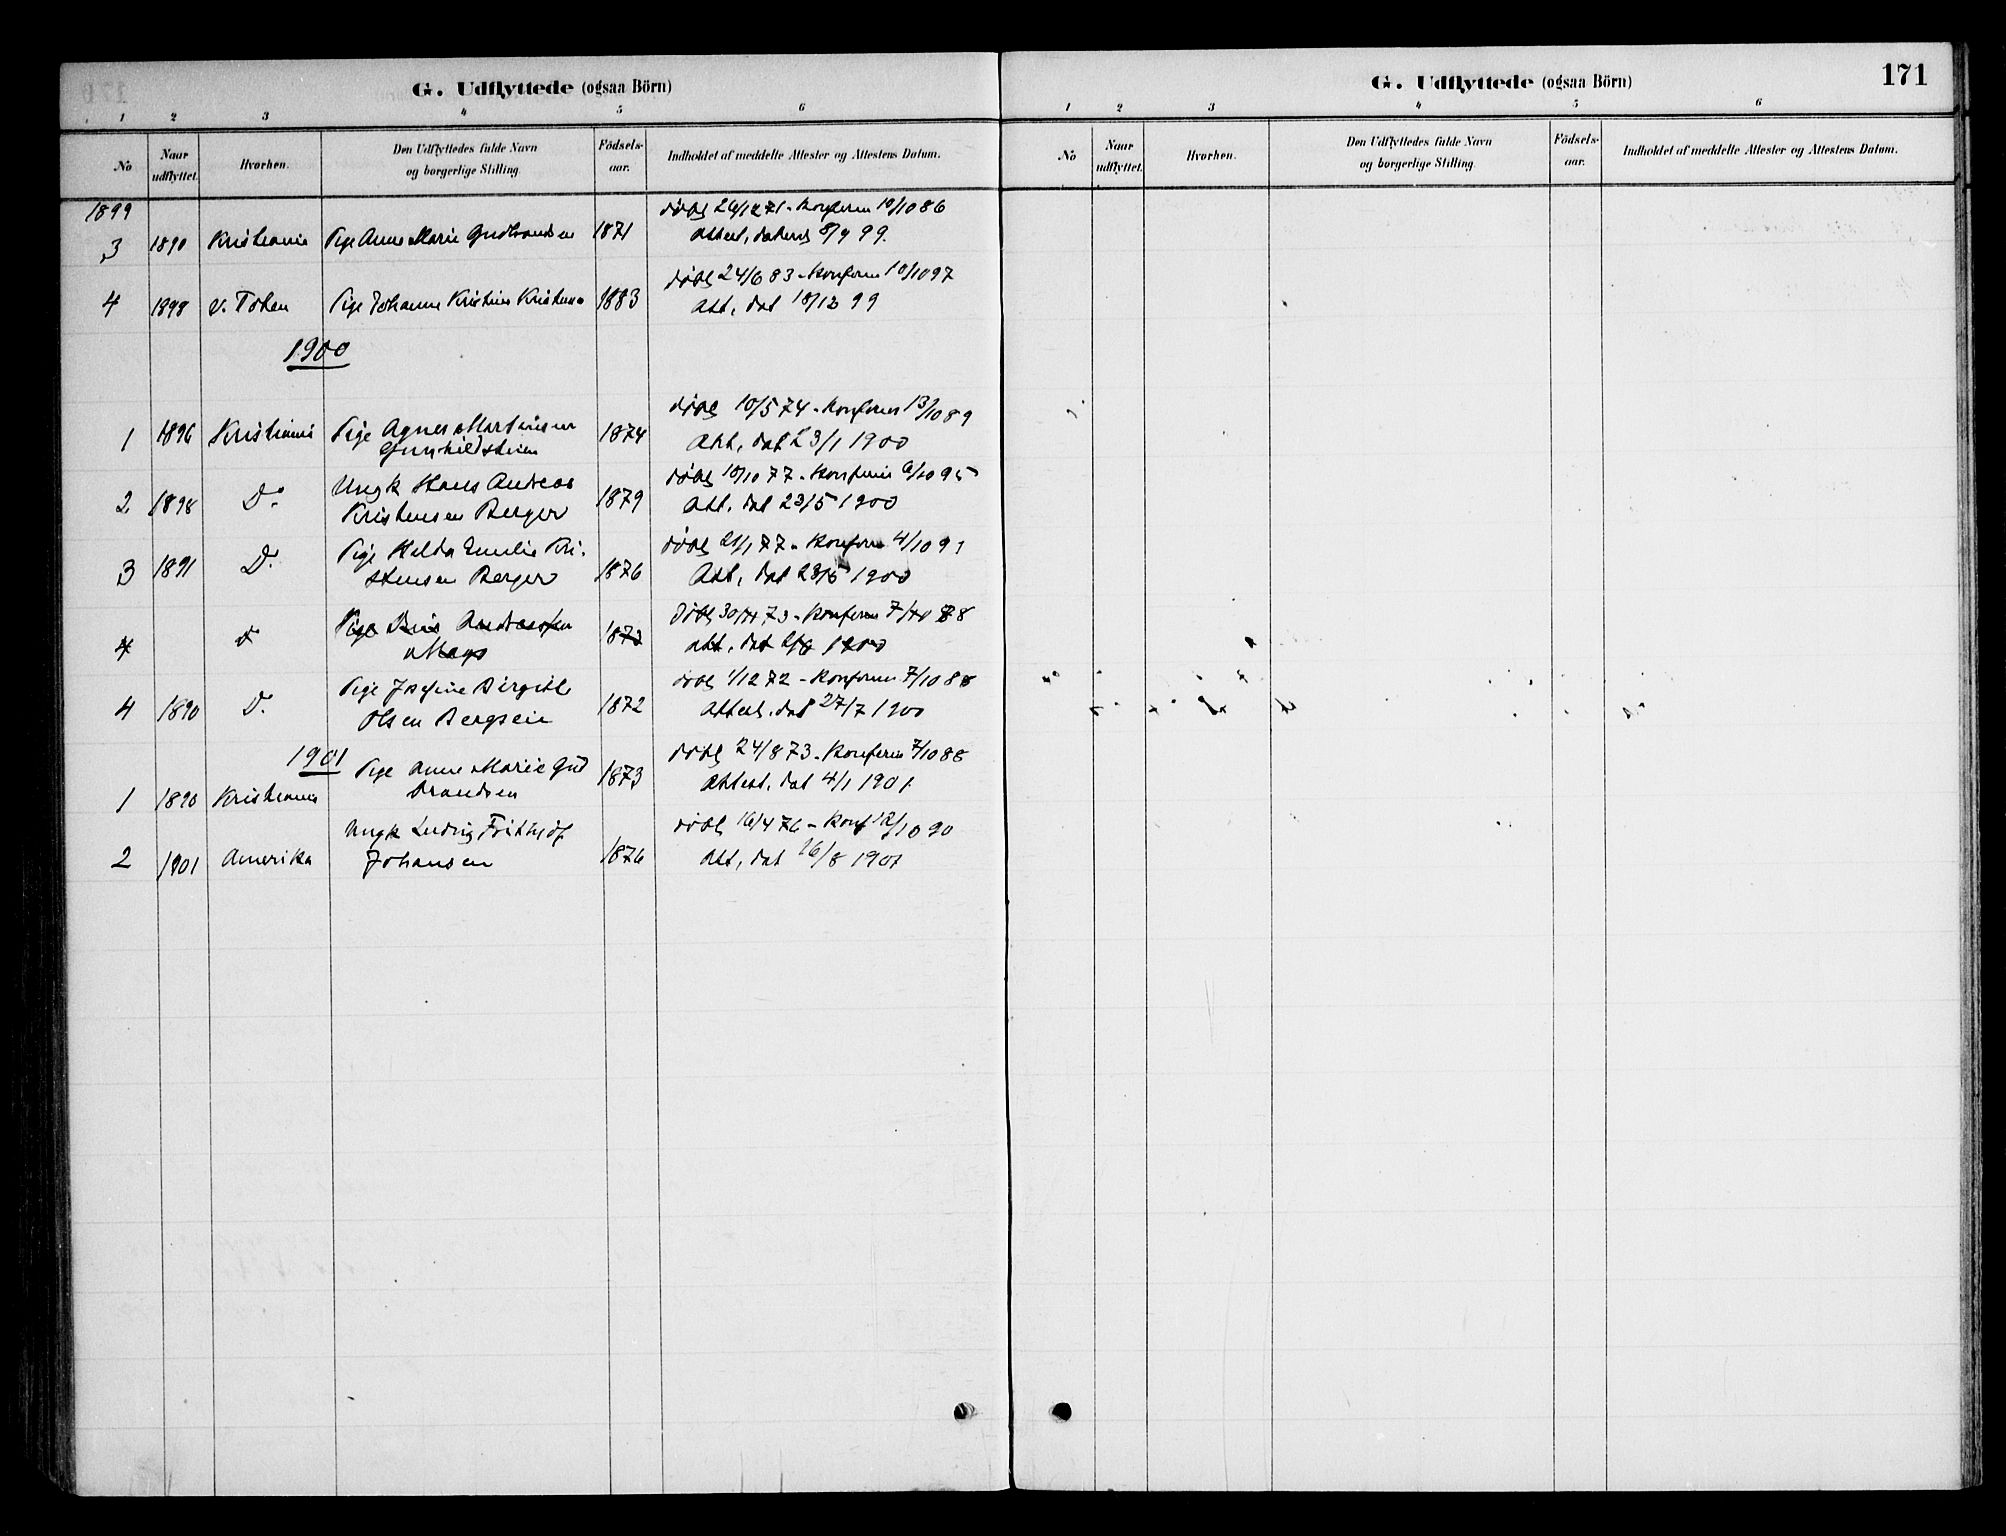 G. Udflyttede (ogsaa Börn)
1 2 3 4 5 6
No Naar udflyttet. Hvorhen. Den Udflyttedes fulde Navn og borgerlige Stilling. Födsels-aar. Indholdet af meddelte Attester og Attestens Datum.
1899
døbt 26/12 71 - Konferm 10/10 86
3 1890 Kristiania Pige Anne Marie Gudbrandsen 1871 Attest, dateret 8/9 99.
døbt 24/6 83 - Konferm 10/10 97
4 1898 V. Toten Pige Johanne Kristine Kristians 1883 Att, dat 18/12 99
1900
døbt 10/5 74 - Konferm 13/10 89
1 1896 Kristiania Pige Agnes Martinsen 1874 Att, dat 23/1 1900
Gunhildstuen
Ungk Hans Andreas døbt 10/10 77 - Konferm 6/10 95
2 1898 D. Kristensen Berger 1879 Att, dat 23/5 1900
Pige Hulda Emilie Kri- døbt 21/1 77 - Konferm 4/10 91
3 1891 D. stensen Berger 1876 Att, dat 23/5 1900
Pige Andersen 1873 døbt 30/11 73 - Konferm 7/10 88
4 d att, dat 1900
Pige Josefine Birgitte døbt 1/12 72 - Konferm 7/10 88
4 1890 D. Olsen Bergseie 1872 Attest. dat 27/7 1900
1901
Pige Anne Marie Gud 1873 døbt 24/8 73 - Konferm 7/10 88
1 1890 Kristiania brandsen Attest. dat 4/1 1901.
Ungk Ludvig Frithjof døbt 16/4 76 - Konf 12/10 90
2 1901 Amerika Johansen 1876 Att, dat 16/8 1901
171
G. Udflyttede (ogsaa Börn)
1 2 3 4 5 6
No Naar udflyttet. Hvorhen. Den Udflyttedes fulde Navn og borgerlige Stilling. Födsels-aar. Indholdet af meddelte Attester og Attestens Datum.